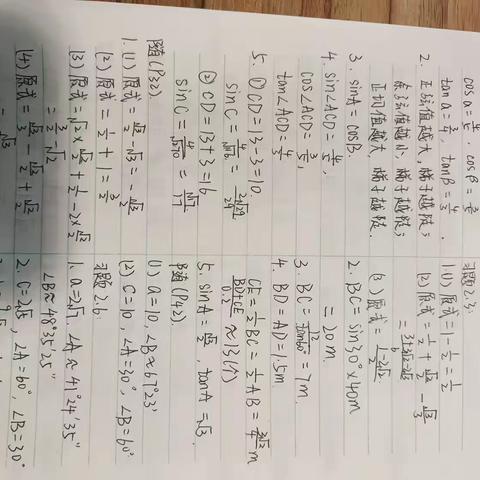 cosα=4/5. cosβ=3/5
tanα=3/4, tanβ=4/3.
2. 正弦值越大, 梯子越陡;
余弦值越小, 梯子越陡;
正切值越大, 梯子越陡.
3. sinA=cosB
4. sin∠ACD=4/5,
cos∠ACD=3/5,
tan∠ACD=4/3
5. ①CD=13-3=10.
②CD=13+3=16
随(P32).
1. (1) 原式=√3/2-√3=-√3/2
(2) 原式=1/2+1=3/2
(3) 原式=√2×√2/2+1/2-2×√2/2
=3/2-√2
(4) 原式=√3/2-√2/2+√2/2
习题2.3:
1.(1) 原式=1-1/2=1/2
(2) 原式=1/2+√2/2-√3/3
=(3+3√2-2√3)/6
(3) 原式=(1-2√2)/2
2. BC=sin30°×40m
=20m.
3. BC=12/tan60°=7m.
4. BD=AD=1.5m
CE=1/2BC=1/2AB=3√3/4m
(BD+CE)/0.2≈13(个)
5. sinA=√3/2, tanA=√3.
随(P42).
(1) a=10, ∠B≈67°23′
(2) C=10, ∠A=30°, ∠B=60°
习题2.6:
1. a=2√7. ∠A≈41°24′35″
∠B≈48°35′25″
2. C=2√5, ∠A=60°, ∠B=30°